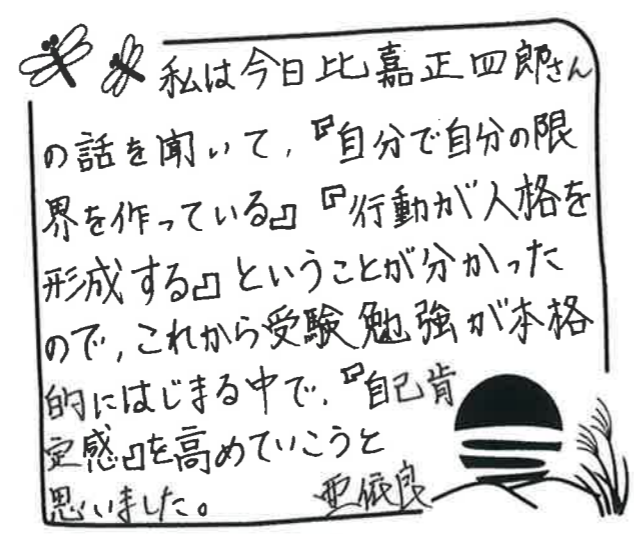 私は今日比嘉正四郎さん
の話を聞いて,『自分で自分の限
界を作っている』『行動が人格を
形成する』ということが分かった
ので,これから受験勉強が本格
的にはじまる中で,『自己肯
定感』を高めていこうと
思いました。 亜依良